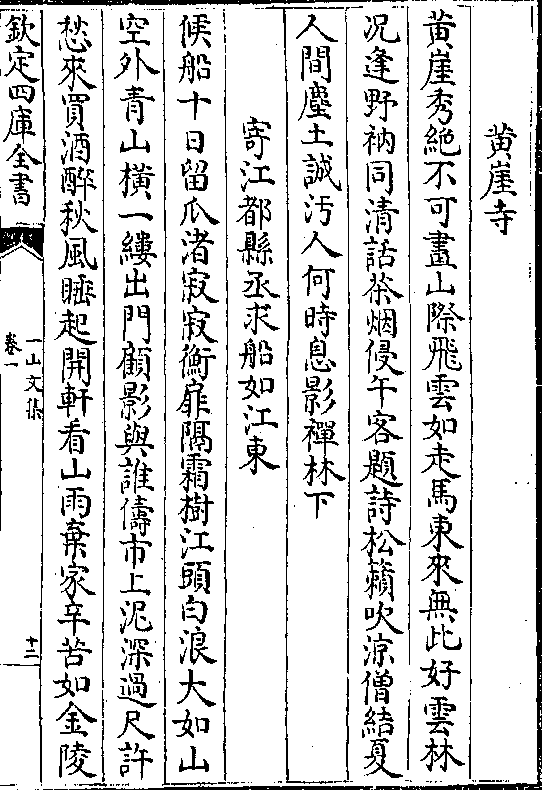 黄崖寺
黄崖秀絶不可畫山際飛雲如走馬東來無此好雲林
况逢野衲同清話茶烟侵午客題詩松籟吹凉僧結夏
人間塵土誠汚人何時息影禪林下
寄江都縣丞求船如江東
候船十日留瓜渚寂寂衡扉隔霜樹江頭白浪大如山
空外青山横一縷出門顧影與誰儔市上泥深過尺許
愁來買酒醉秋風睡起開軒看山雨棄家辛苦如金陵
欽定四庫全書
一山文集
卷一
十二